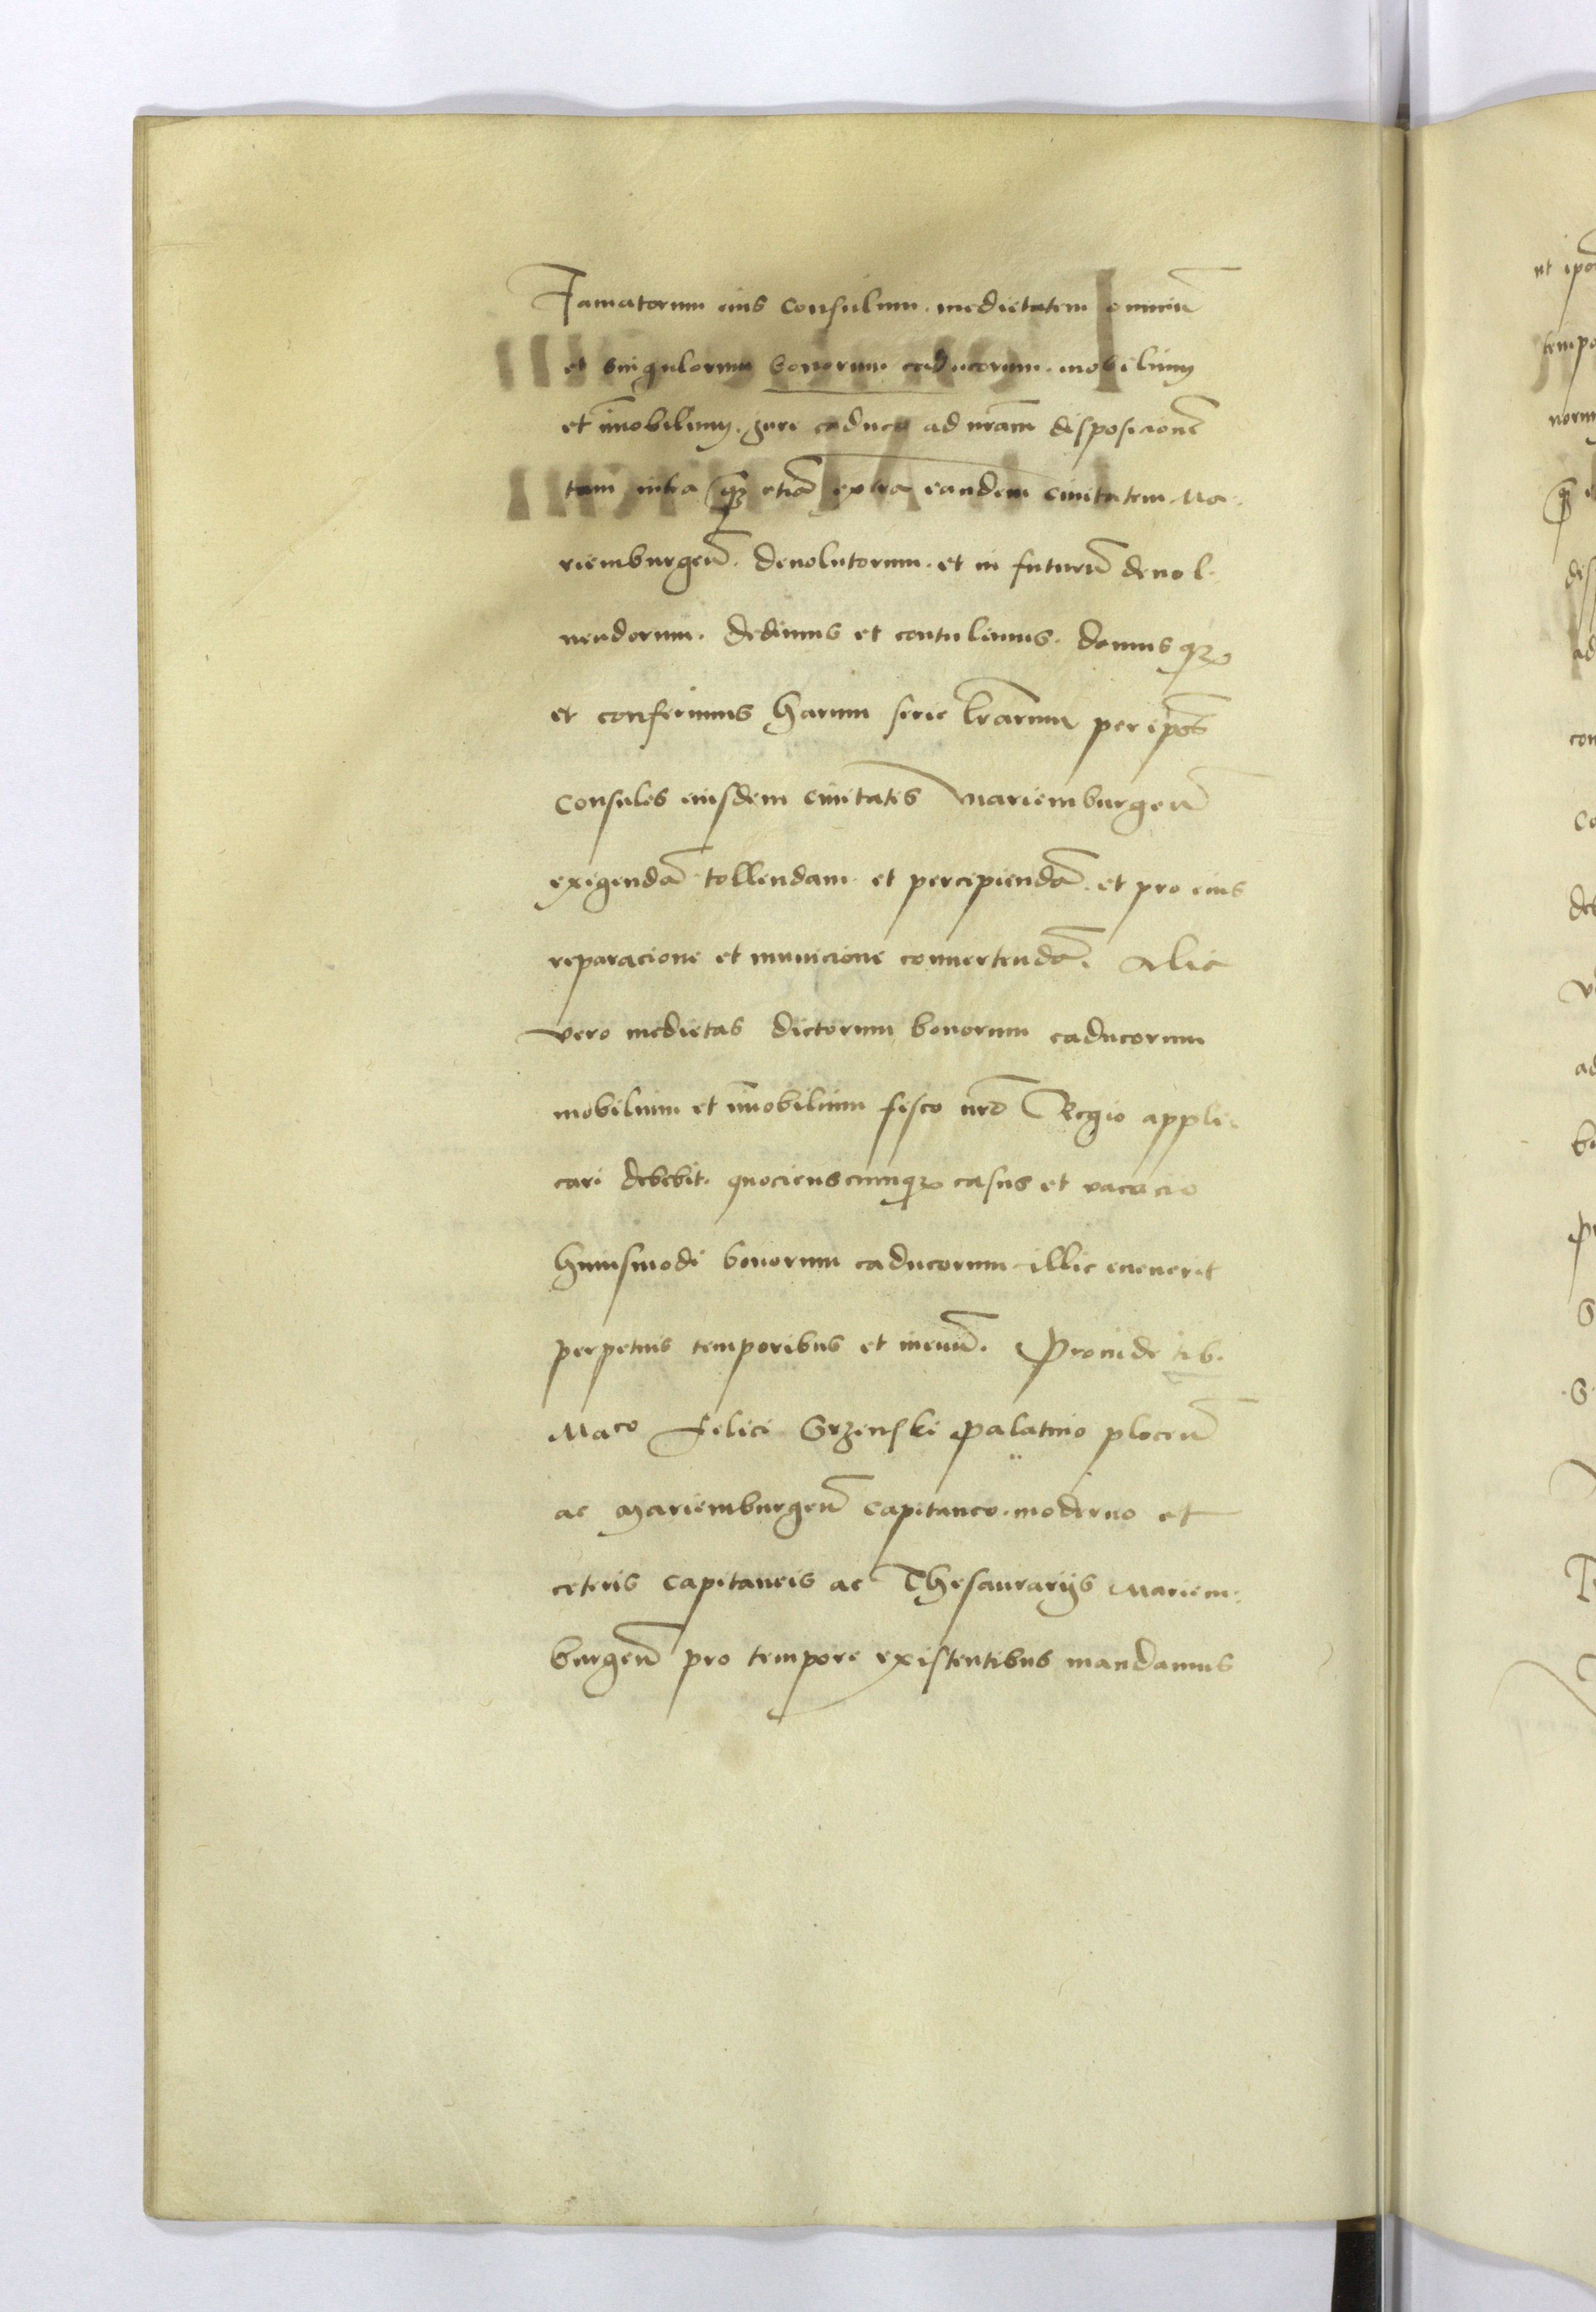 Famatorum eius Consulum. medietatem omniũ
et singulorum bonorum caducorum. mobilium
et im̃obilium. jure caduco ad nr̃am disposicionẽ
tam intra q̃z etiã extra eandem ciuitatem Ma-
riemburgeñ. deuolutorum. et in futurũ deuol-
uendorum. dedimus et contulimus. damusqz
et conferimus harum serie lr̃arum per ip̃os
Consules eiusdem ciuitatis Mariemburgeñ
exigendã tollendam et percipiendã. et pro eius
reparacione et municione conuertendã. Alia
vero medietas dictorum bonorum caducorum
mobilium et im̃obilium fisco nr̃o Regio appli-
cari debebit. quocienscumqz casus et vacacio
huiusmodi bonorum caducorum illic euenerit
perpetuis temporibus et in euũ. Prouide tib.
Maco Felici Srzenski palatino ploceñ
ac Mariemburgeñ Capitaneo. moderno et
ceteris Capitaneis ac Thesaurarijs Mariem-
burgeñ pro tempore existentibus mandamus
ut